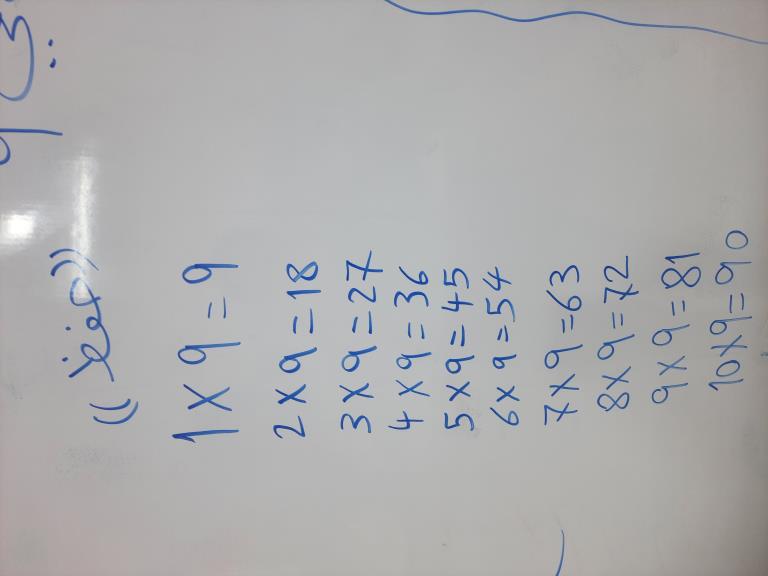 ((حفظ))
1 × 9 = 9
2 × 9 = 18
3 × 9 = 27
4 × 9 = 36
5 × 9 = 45
6 × 9 = 54
7 × 9 = 63
8 × 9 = 72
9 × 9 = 81
10 × 9 = 90